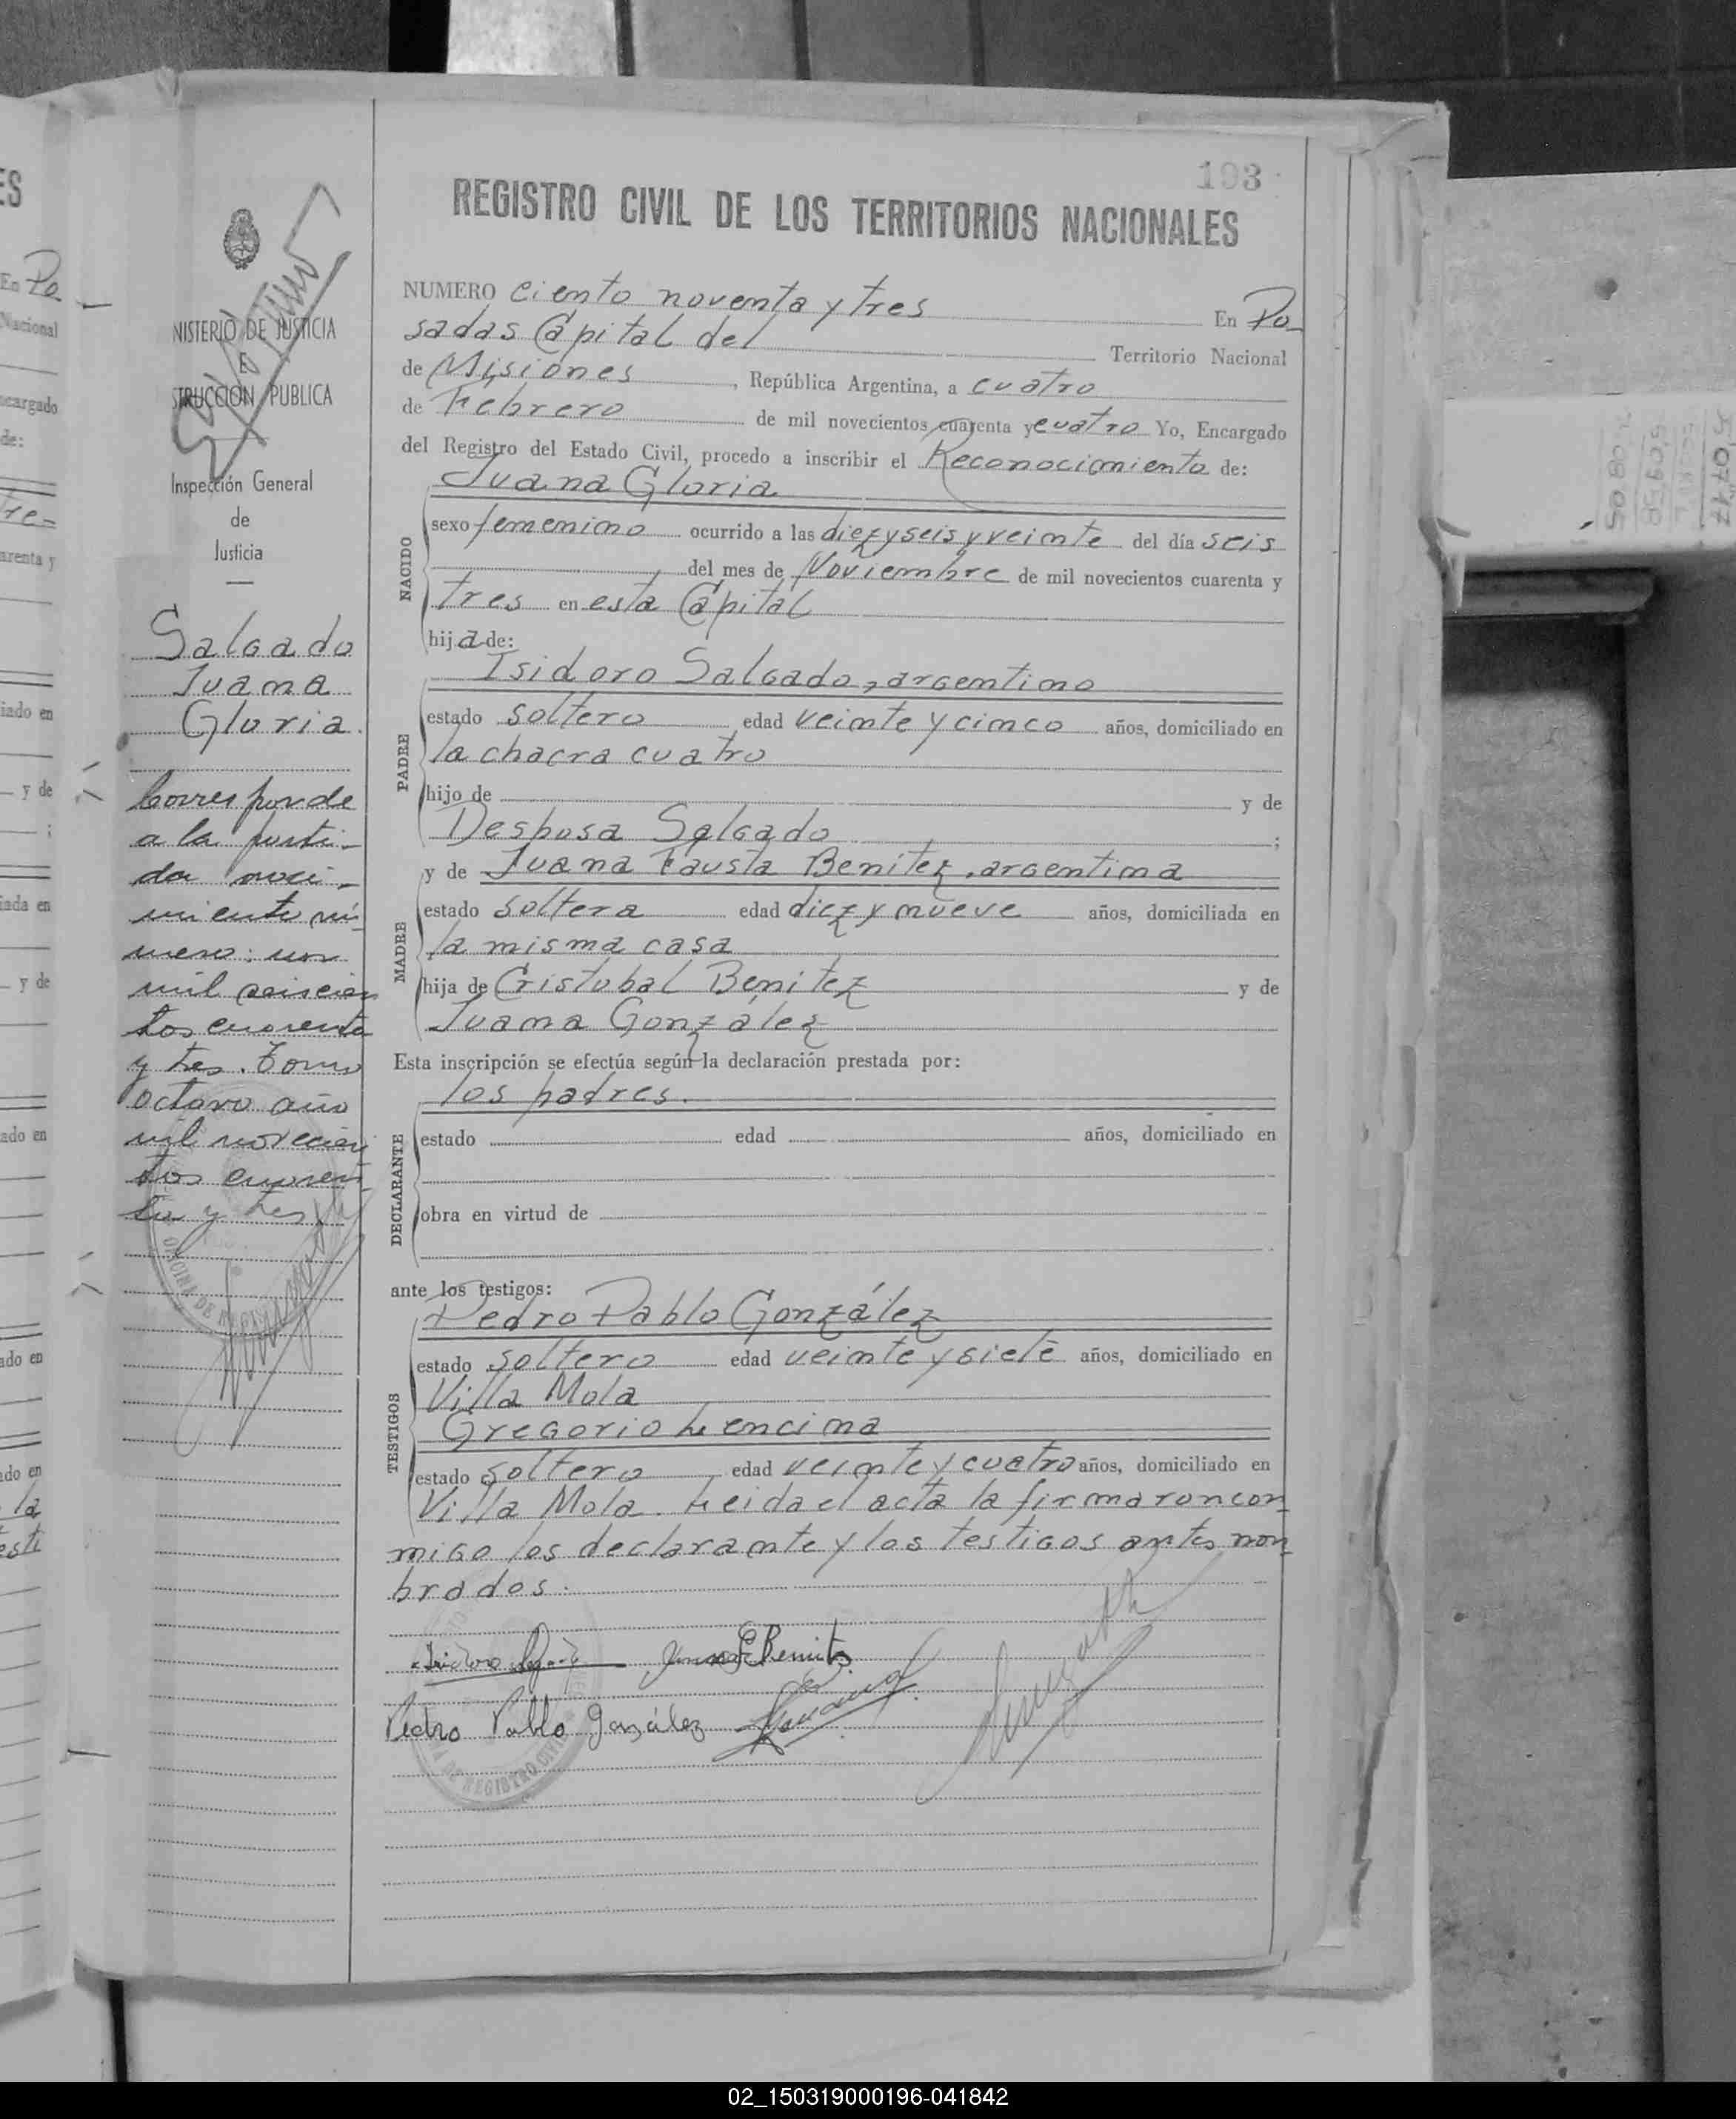 193
REGISTRO CIVIL DE LOS TERRITORIOS NACIONALES
NUMERO ciento noventa y tres En Po-
sadas Capital del Territorio Nacional
de Misiones, República Argentina, a cuatro
de Febrero de mil novecientos cuarenta y cuatro Yo, Encargado
del Registro del Estado Civil, procedo a inscribir el Reconocimiento de:
Juana Gloria
NACIDO
sexo femenino ocurrido a las diez y seis y veinte del día seis
del mes de Noviembre de mil novecientos cuarenta y
tres en esta Capital
hija de:
Isidoro Salgado, argentino
PADRE
estado soltero edad veinte y cinco años, domiciliado en
la chacra cuatro
hijo de y de
Desposa Salgado;
y de Juana Fausta Benitez, argentina
MADRE
estado soltera edad diez y nueve años, domiciliada en
la misma casa
hija de Cristobal Benitez y de
Juana González
Esta inscripción se efectúa según la declaración prestada por:
los padres.
DECLARANTE
estado edad años, domiciliado en
obra en virtud de
ante los testigos:
Pedro Pablo González
TESTIGOS
estado soltero edad veinte y siete años, domiciliado en
Villa Mola
Gregorio Lencina
estado soltero edad veinte y cuatro años, domiciliado en
Villa Mola. Leida el acta la firmaron con
migo los declarante y los testigos antes non
brados.
Isidoro
Juana F Benitez
Pedro Pablo González
NISTERIO DE JUSTICIA
E
STRUCCION PUBLICA
Inspección General
de
Justicia
Salgado
Juana
Gloria.
Corresponde
a la parti-
da naci-
miento nú-
mero: un
mil seiscien
tos cuarenta
y tres. Tomo
octavo año
mil novecien
tos cuaren
ta y tres
OFICINA DE
DE REGISTRO CIVIL
ES
En Po
Nacional
ncargado
de:
tre-
arenta y
iado en
y de
;
iada en
y de
ado en
ado en
ado en
la
esti
02_150319000196-041842